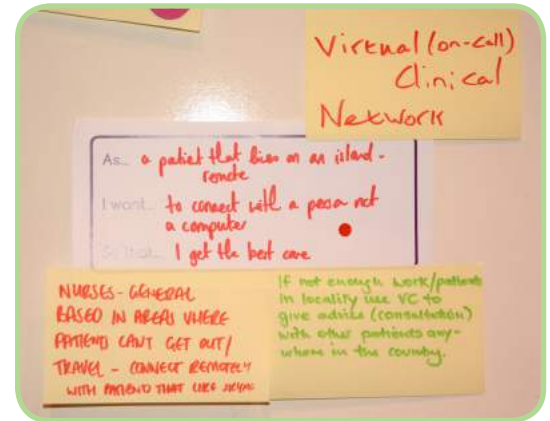 Virtual (on-call)
Clinical
Network
As... a patient that lives on an island -
remote
I want... to connect with a person not
a computer
So that... I get the best care
NURSES - GENERAL
BASED IN AREAS WHERE
PATIENTS CAN'T GET OUT/
TRAVEL - CONNECT REMOTELY
WITH PATIENT THAT LIKE
If not enough work/patients
in locality use VC to
give advice (consultation)
with other patients any-
where in the country.